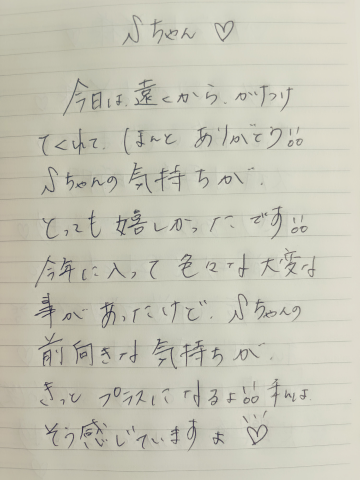 Sちゃん♡
今日は、遠くから、かけつけ
てくれて、ほんと ありがとう!!
Sちゃんの気持ちが、
とっても嬉しかったです!!
今年に入って色々な大変な
事があったけど、Sちゃんの
前向きな気持ちが、
きっと プラスになるよ!! 私は、
そう感じていますよ♡